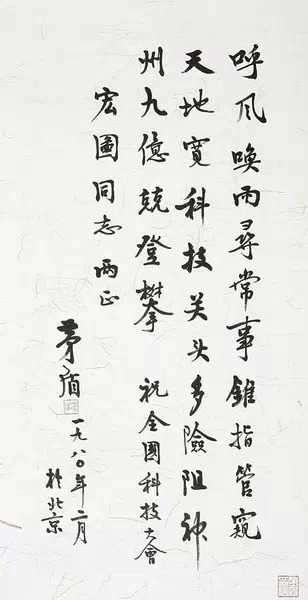 呼风唤雨寻常事锥指管窥
天地宽科技关头多险阻神
州九億兢登攀 祝全国科技大會
宏圖同志 两正
茅盾 一九八〇年二月
於北京